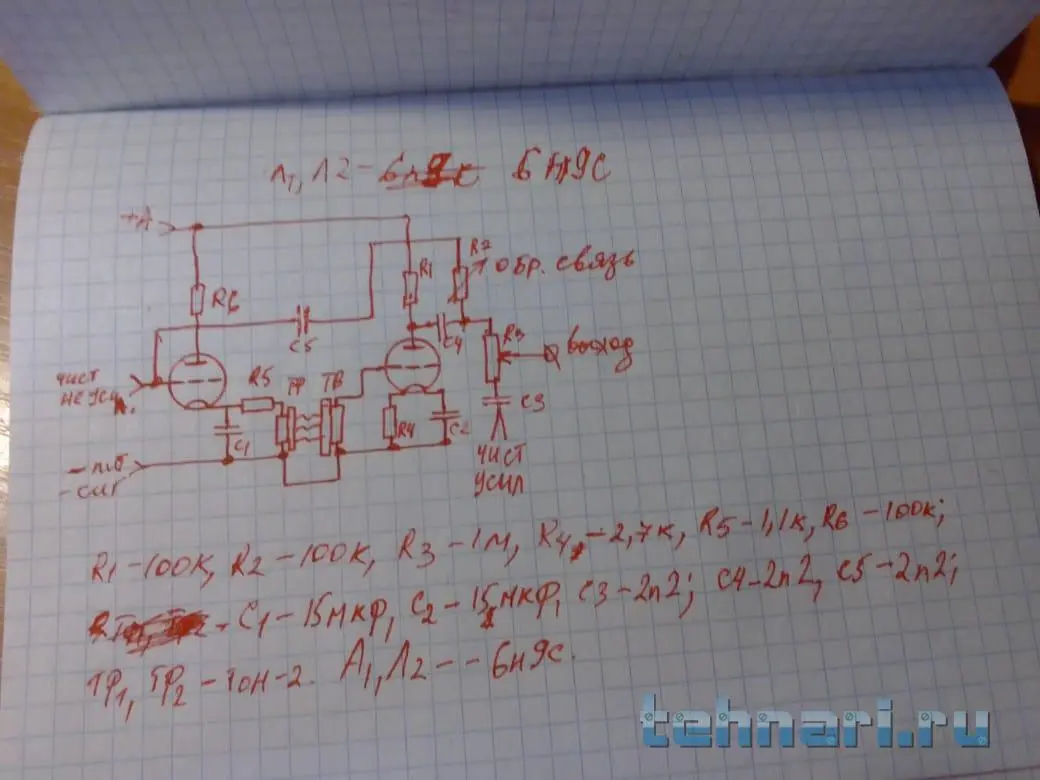 Л1, Л2 - 6Н9С
+А
R6
R1
R2
обр. связь
C5
C4
R3
выход
чист
не усил.
R5
ТР
ТВ
C1
R4
C2
C3
- пит
- сиг
чист
усил
R1-100К, R2-100К, R3-1М, R4-2,7К, R5-1,1К, R6-100К;
C1-15мкф, C2-15мкф, C3-2n2; C4-2n2, C5-2n2;
ТР1, ТР2-ТОН-2. Л1, Л2--6Н9С.
tehnari.ru